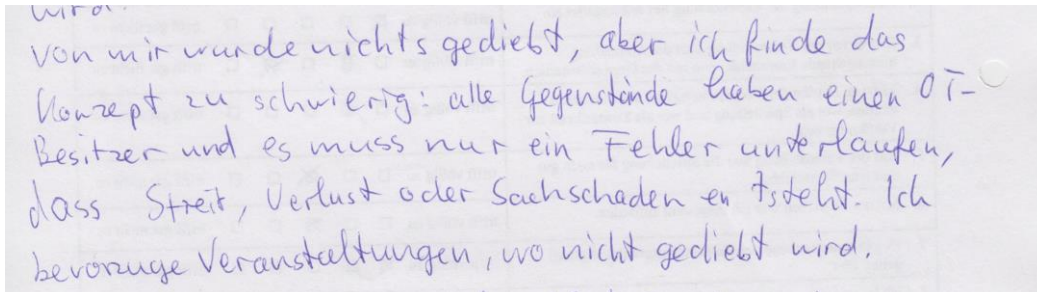 wird.
von mir wurde nichts gediebt, aber ich finde das
Konzept zu schwierig: alle Gegenstände haben einen OT-
Besitzer und es muss nur ein Fehler unterlaufen,
dass Streit, Verlust oder Sachschaden entsteht. Ich
bevorzuge Veranstaltungen, wo nicht gediebt wird.